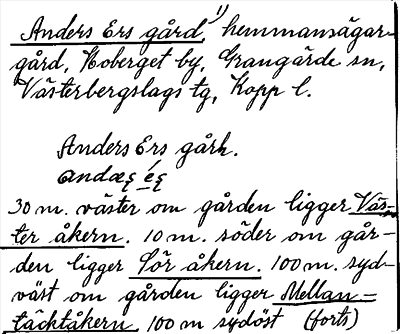 Anders Ers gård, 1) hemmansägar-
gård, Hoberget by, Grangärde sn,
Västerbergslags tg, Kopp l.
Anders Ers gårk.
andæʂ éʂ
30 m. väster om gården ligger Väs-
ter åkern. 10 m. söder om går-
den ligger Sör åkern. 100 m. syd-
väst om gården ligger Mellan-
täcktåkern 100 m sydöst (forts)